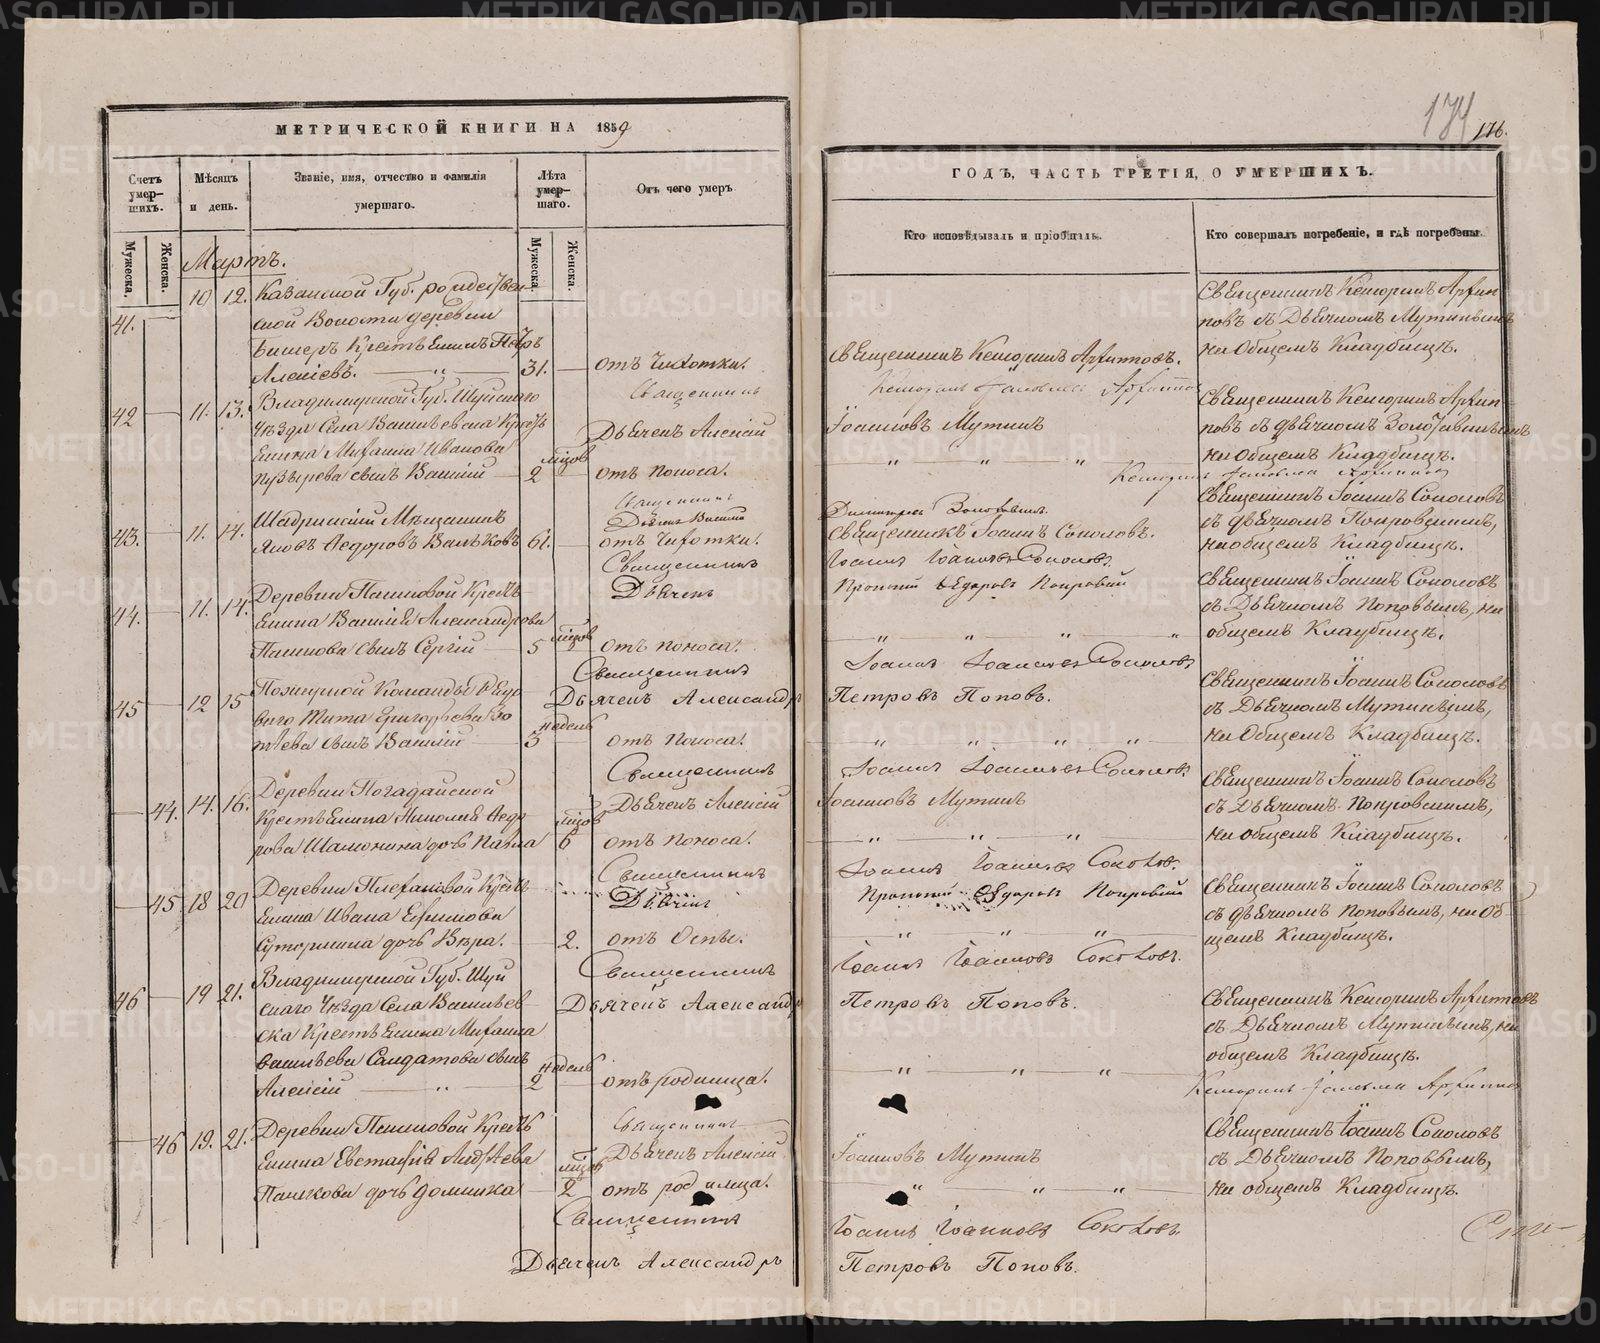 МЕТРИЧЕСКОЙ КНИГИ НА 1859
Счетъ умер-шихъ.
Мѣсяцъ и день.
Званіе, имя, отчество и фамилія умершаго.
Лѣта умер-шаго.
Отъ чего умеръ
Мужеска.
Женска.
Мужеска.
Женска.
Мартъ.
41. 10 12. Казанской Губ.
ской Волости деревни
Алексѣевъ. — „ — 31. — отъ Чихотки.
Священникъ
42 — 11. 13. Владимирской Губ. Шуйскаго
Уѣзда Села Васильевска Кресть
янина Михаила Иванова
Дьячекъ Алексій
мѣсов
Пузырева сынъ Василій — 2 отъ поноса.
Священникъ
43. — 11. 14. Шадринскій Мѣщанинъ
Дьячекъ
Яковъ Ѳедоровъ 61. — отъ Чихотки.
Священникъ
44. — 11. 14. Деревни Пашковой Кресть
Дьячекъ
янина Василія Александрова
мѣсов
Пашкова сынъ Сергій — 5 отъ поноса.
Священникъ
45 — 12 15 Пожарной Команды
Дьячекъ Александръ
ваго Тита Григорьева
недель
сынъ Василій — 3 отъ Поноса.
Священникъ
— 44. 14. 16. Деревни
Дьячекъ Алексій
Крестьянина Николая Ѳедо
мѣсов
рова Шамонина дочь Павла 6 отъ поноса.
Священникъ
— 45 18 20 Деревни Кресть
Дьячекъ
янина Ивана Ефимова
Сутормина дочь Вѣра. — 2. отъ Оспы.
Священникъ
46 — 19 21. Владимирской Губ. Шуй
Дьячекъ Александръ
скаго Уѣзда Села Васильев
ска Крестьянина Михаила
Васильева Салдатова сынъ
недель
Алексій — „ — 2 — отъ родимца.
Священникъ
— 46 19. 21. Деревни Пашковой Кресть
Дьячекъ Алексій
янина Евстафія Андрѣева
мѣсов
Пашкова дочь Домника — 2 отъ родимца.
Священникъ
Дьячекъ Александръ
174
176.
ГОДЪ, ЧАСТЬ ТРЕТІЯ, О УМЕРШИХЪ.
Кто исповѣдывалъ и пріобщалъ.
Кто совершалъ погребеніе, и гдѣ погребены.
Священникъ Архип
повъ съ Дьячкомъ Мутинымъ
на Общемъ Кладбищѣ.
Священникъ Архиповъ.
Архипов
Священникъ Архип
Іоанновъ Мутинъ
повъ съ дьячкомъ
на Общемъ Кладбищѣ.
„ „ „
Священникъ Іоаннъ Соколовъ
Димитрій
съ дьячкомъ Покровскимъ,
Священникъ Іоаннъ Соколовъ.
на общемъ Кладбищѣ.
Іоаннъ Іоанновъ Соколовъ.
Прокопій Ѳедоровъ Покровскій
Священникъ Іоаннъ Соколовъ
съ Дьячкомъ Поповымъ, на
„ „ „ „
общемъ Кладбищѣ.
Іоаннъ Іоанновъ Соколовъ
Священникъ Іоаннъ Соколовъ
Петровъ Поповъ.
съ Дьячкомъ Мутинымъ,
„ „ „ „
на Общемъ Кладбищѣ.
Іоаннъ Іоанновъ Соколовъ
Священникъ Іоаннъ Соколовъ
Іоанновъ Мутинъ
съ Дьячкомъ Покровскимъ,
„ „ „
на общемъ Кладбищѣ.
Іоаннъ Іоанновъ Соколовъ.
Священникъ Іоаннъ Соколовъ
Прокопій Ѳедоровъ Покровскій
съ дьячкомъ Поповымъ, на Об
„ „ „
щемъ Кладбищѣ.
Іоаннъ Іоанновъ Соколовъ.
Петровъ Поповъ.
Священникъ Архиповъ
съ Дьячкомъ Мутинымъ, на
общемъ Кладбищѣ.
„ „ „
Священникъ Іоаннъ Соколовъ
Іоанновъ Мутинъ
съ Дьячкомъ Поповымъ,
„ „ „
на общемъ Кладбищѣ.
Іоаннъ Іоанновъ Соколовъ.
Петровъ Поповъ.
METRIKI.GASO-URAL.RU